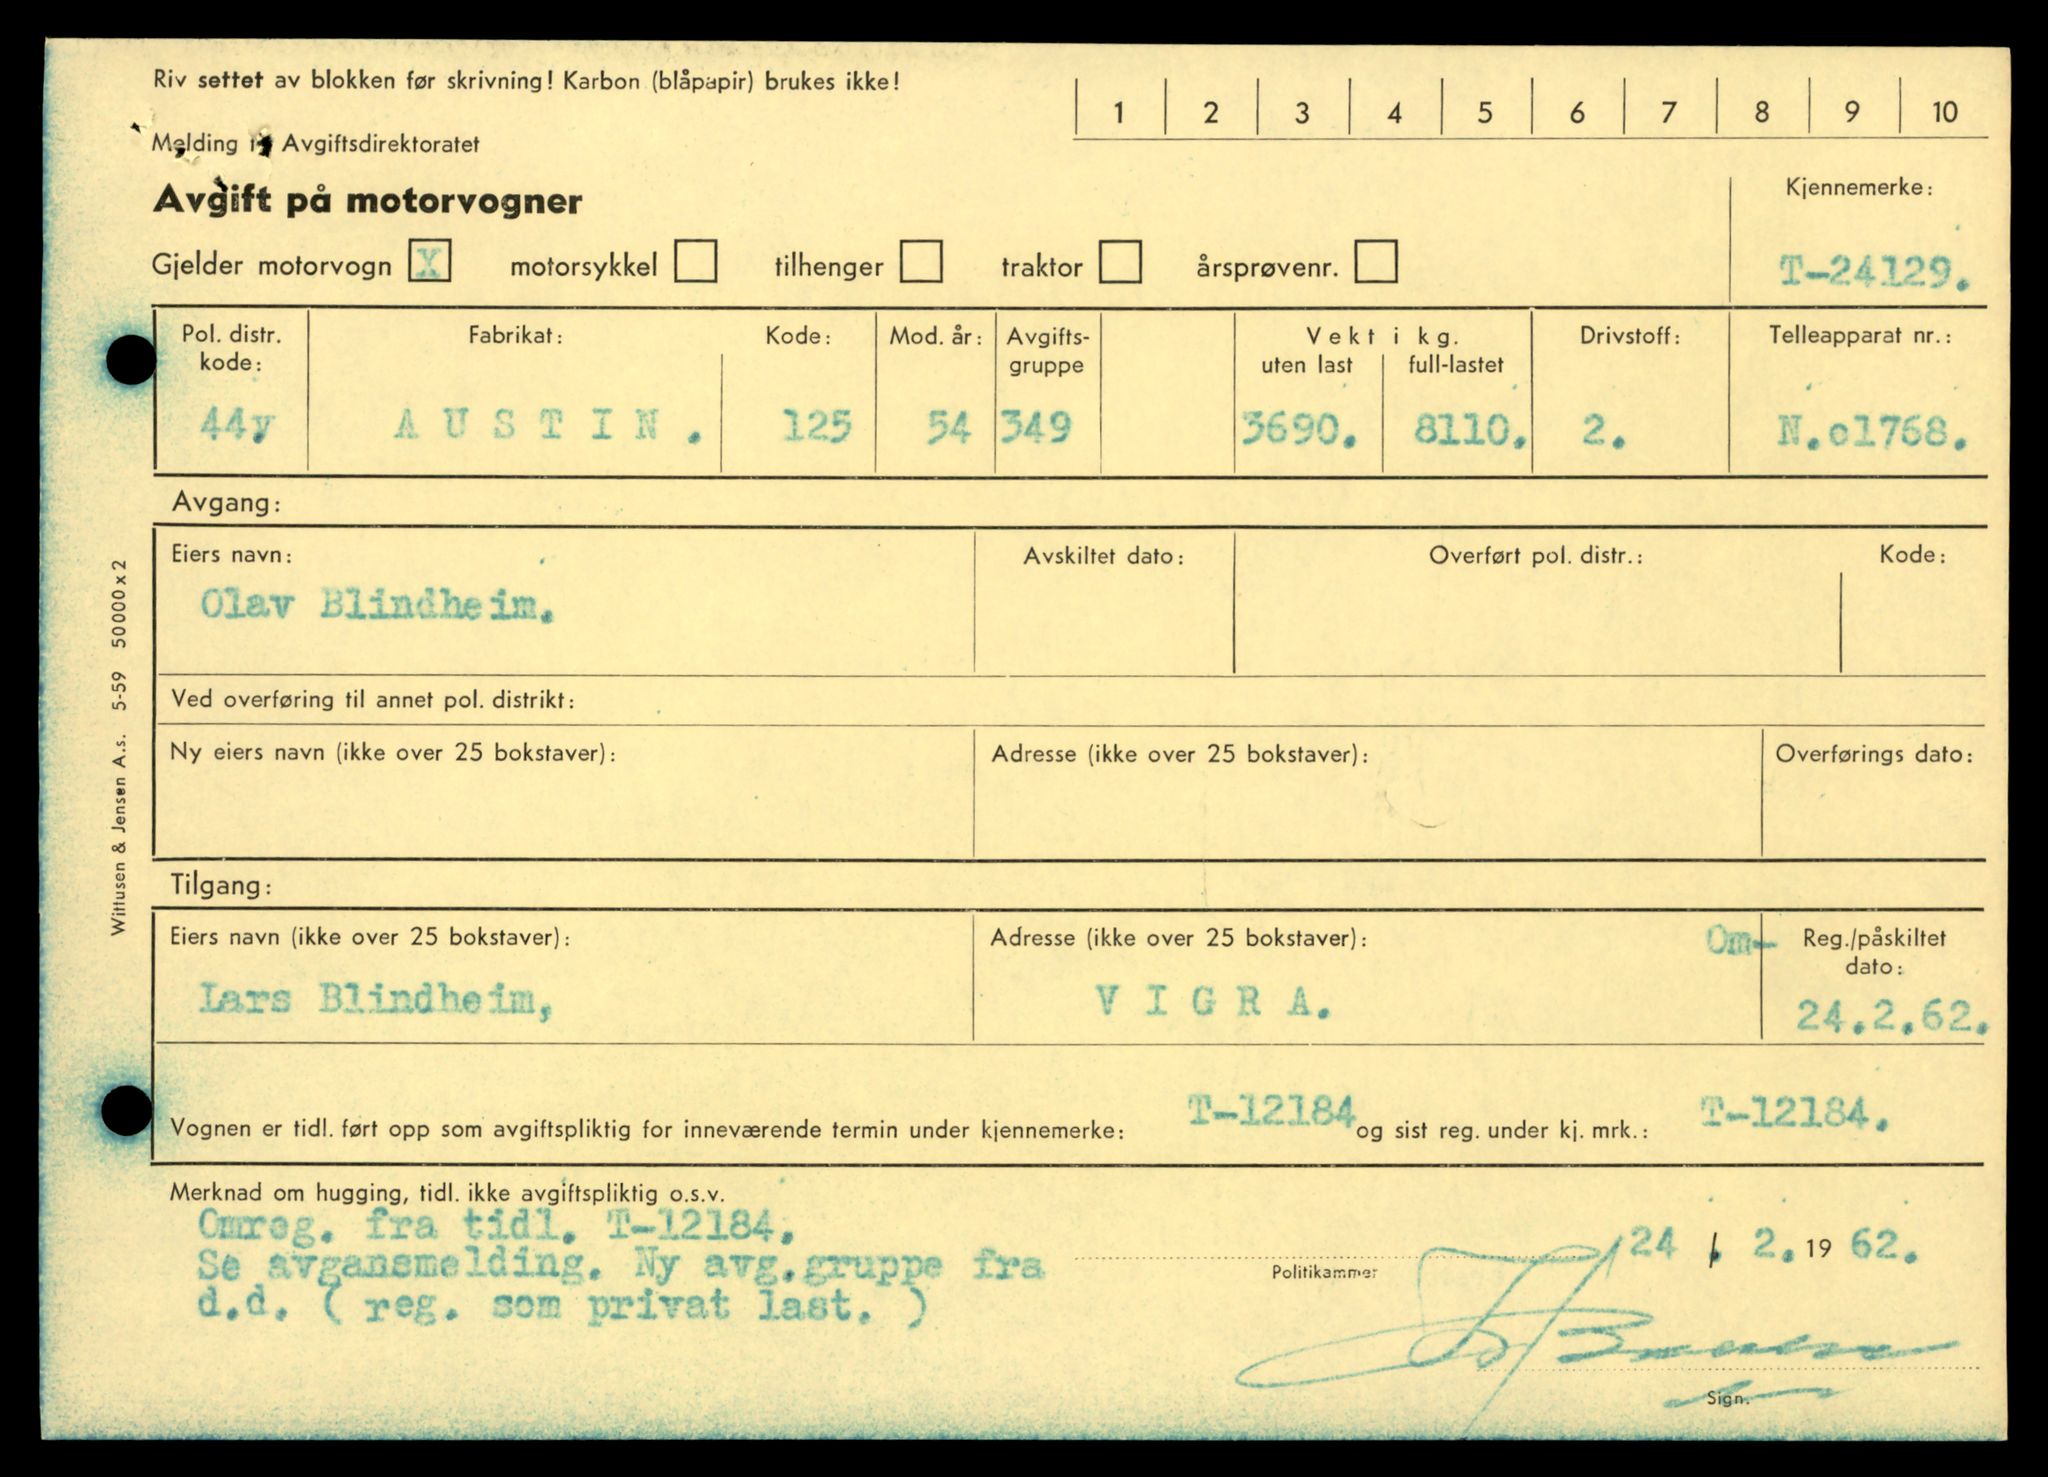 Riv settet av blokken før skrivning! Karbon (blåpapir) brukes ikke!
1 2 3 4 5 6 7 8 9 10
Melding til Avgiftsdirektoratet
Avgift på motorvogner
Kjennemerke:
Gjelder motorvogn X motorsykkel tilhenger traktor årsprøvenr.
T-24129.
Pol. distr. kode: Fabrikat: Kode: Mod. år: Avgifts-gruppe Vekt i kg. uten last full-lastet Drivstoff: Telleapparat nr.:
44y AUSTIN. 125 54 349 3690. 8110. 2. N.o1768.
Avgang:
Eiers navn: Avskiltet dato: Overført pol. distr.: Kode:
Olav Blindheim.
Ved overføring til annet pol. distrikt:
Ny eiers navn (ikke over 25 bokstaver): Adresse (ikke over 25 bokstaver): Overførings dato:
Tilgang:
Eiers navn (ikke over 25 bokstaver): Adresse (ikke over 25 bokstaver): Om- Reg./påskiltet dato:
Lars Blindheim, VIGRA. 24.2.62.
Vognen er tidl. ført opp som avgiftspliktig for inneværende termin under kjennemerke: T-12184 og sist reg. under kj. mrk.: T-12184.
Merknad om hugging, tidl. ikke avgiftspliktig o.s.v.
Omreg. fra tidl. T-12184.
Se avgansmelding. Ny avg.gruppe fra
d.d. ( reg. som privat last. )
24 /. 2. 19 62.
Politikammer
Sign.
Wittusen & Jensen A.s. 5-59 50000x2